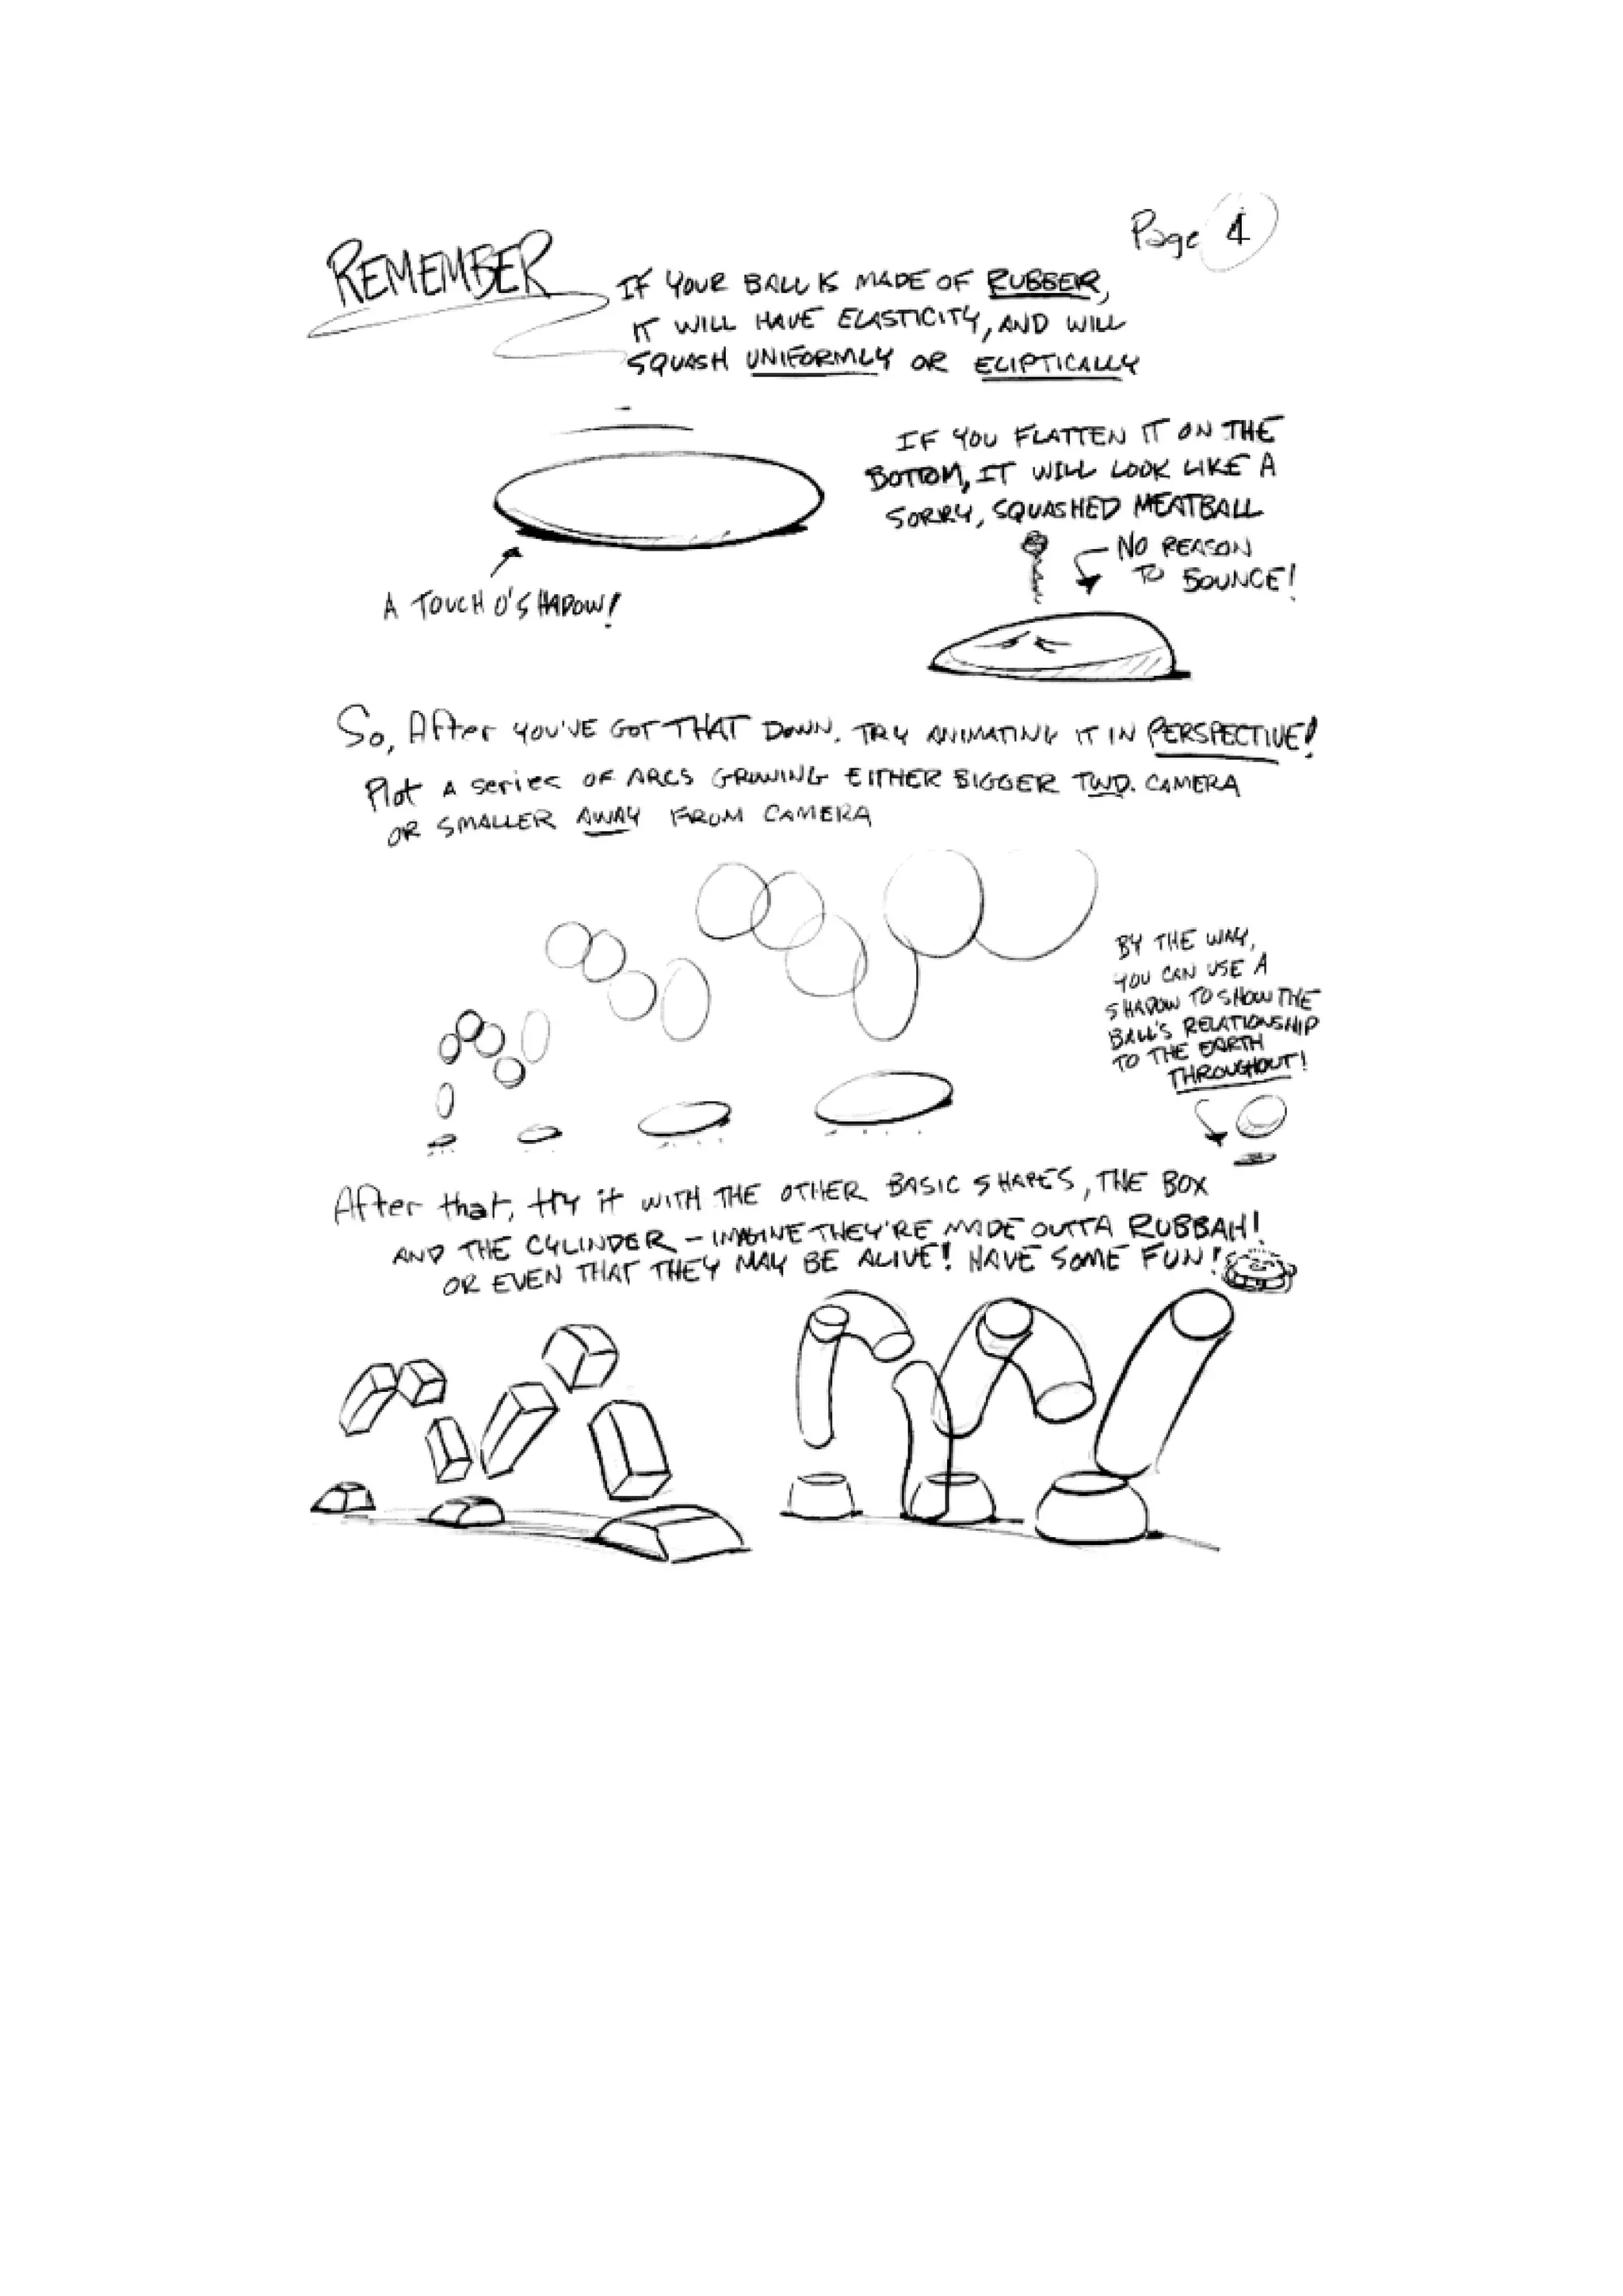 Page 4
REMEMBER
IF YOUR BALL IS MADE OF RUBBER,
IT WILL HAVE ELASTICITY, AND WILL
SQUASH UNIFORMLY OR ELIPTICALLY
IF YOU FLATTEN IT ON THE
BOTTOM, IT WILL LOOK LIKE A
SORRY, SQUASHED MEATBALL
NO REASON
TO BOUNCE!
A TOUCH O'SHADOW!
So, After YOU'VE GOT THAT DOWN. TRY ANIMATING IT IN PERSPECTIVE!
Plot A series OF ARCS GROWING EITHER BIGGER TWD. CAMERA
OR SMALLER AWAY FROM CAMERA
BY THE WAY,
YOU CAN USE A
SHADOW TO SHOW THE
BALL'S RELATIONSHIP
TO THE EARTH
THROUGHOUT!
After that, try it WITH THE OTHER BASIC SHAPES, THE BOX
AND THE CYLINDER - IMAGINE THEY'RE MADE OUTTA RUBBAH!
OR EVEN THAT THEY MAY BE ALIVE! HAVE SOME FUN!